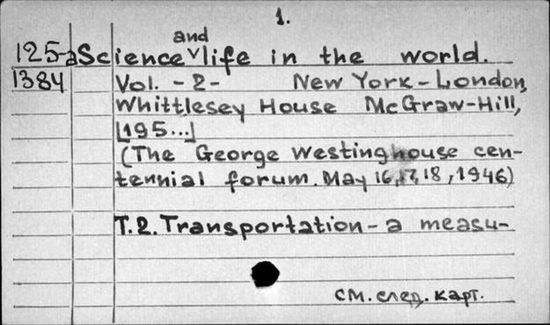 1.
125-a Science and life in the world.
1384 Vol. - 2 - New York - London,
Whittlesey House McGraw-Hill,
[195...]
(The George Westinghouse cen-
tennial forum. May 16, 17, 18, 1946)
T. 2. Transportation - a measu-
см. след. карт.